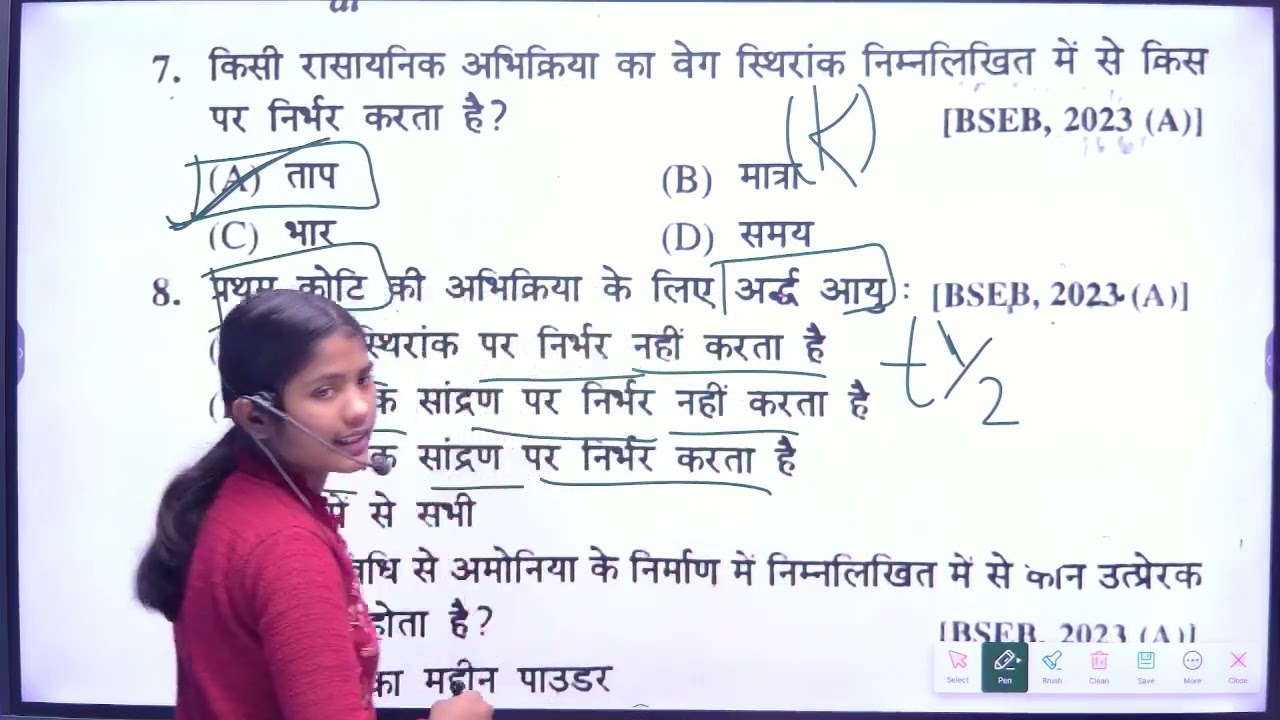 7. किसी रासायनिक अभिक्रिया का वेग स्थिरांक निम्नलिखित में से किस
पर निर्भर करता है? [BSEB, 2023 (A)]
(K)
(A) ताप (B) मात्रा
(C) भार (D) समय
8. प्रथम कोटि की अभिक्रिया के लिए अर्द्ध आयु : [BSEB, 2023 (A)]
स्थिरांक पर निर्भर नहीं करता है
t 1/2
सांद्रण पर निर्भर नहीं करता है
सांद्रण पर निर्भर करता है
में से सभी
से अमोनिया के निर्माण में निम्नलिखित में से कौन उत्प्रेरक
होता है?
[BSEB, 2023 (A)]
का महीन पाउडर
Select Pen Brush Clean Save More Close